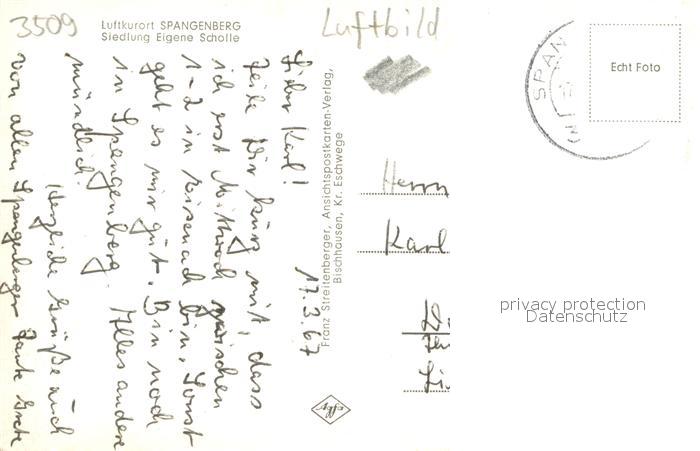 3509
Luftkurort SPANGENBERG
Siedlung Eigene Scholle
Luftbild
17.3.67
Lieber Karl!
Teile Dir kurz mit, dass
ich erst Mittwoch zwischen
1-2 in Eisenach bin. Sonst
geht es mir gut. Bin noch
in Spangenberg. Alles andere
mündlich.
Herzliche Grüße auch
von allen Spangenberger Tante Grete
Franz Streitenberger, Ansichtspostkarten-Verlag,
Bischhausen, Kr. Eschwege
SPAN
Echt Foto
Herrn
Karl
privacy protection
Datenschutz